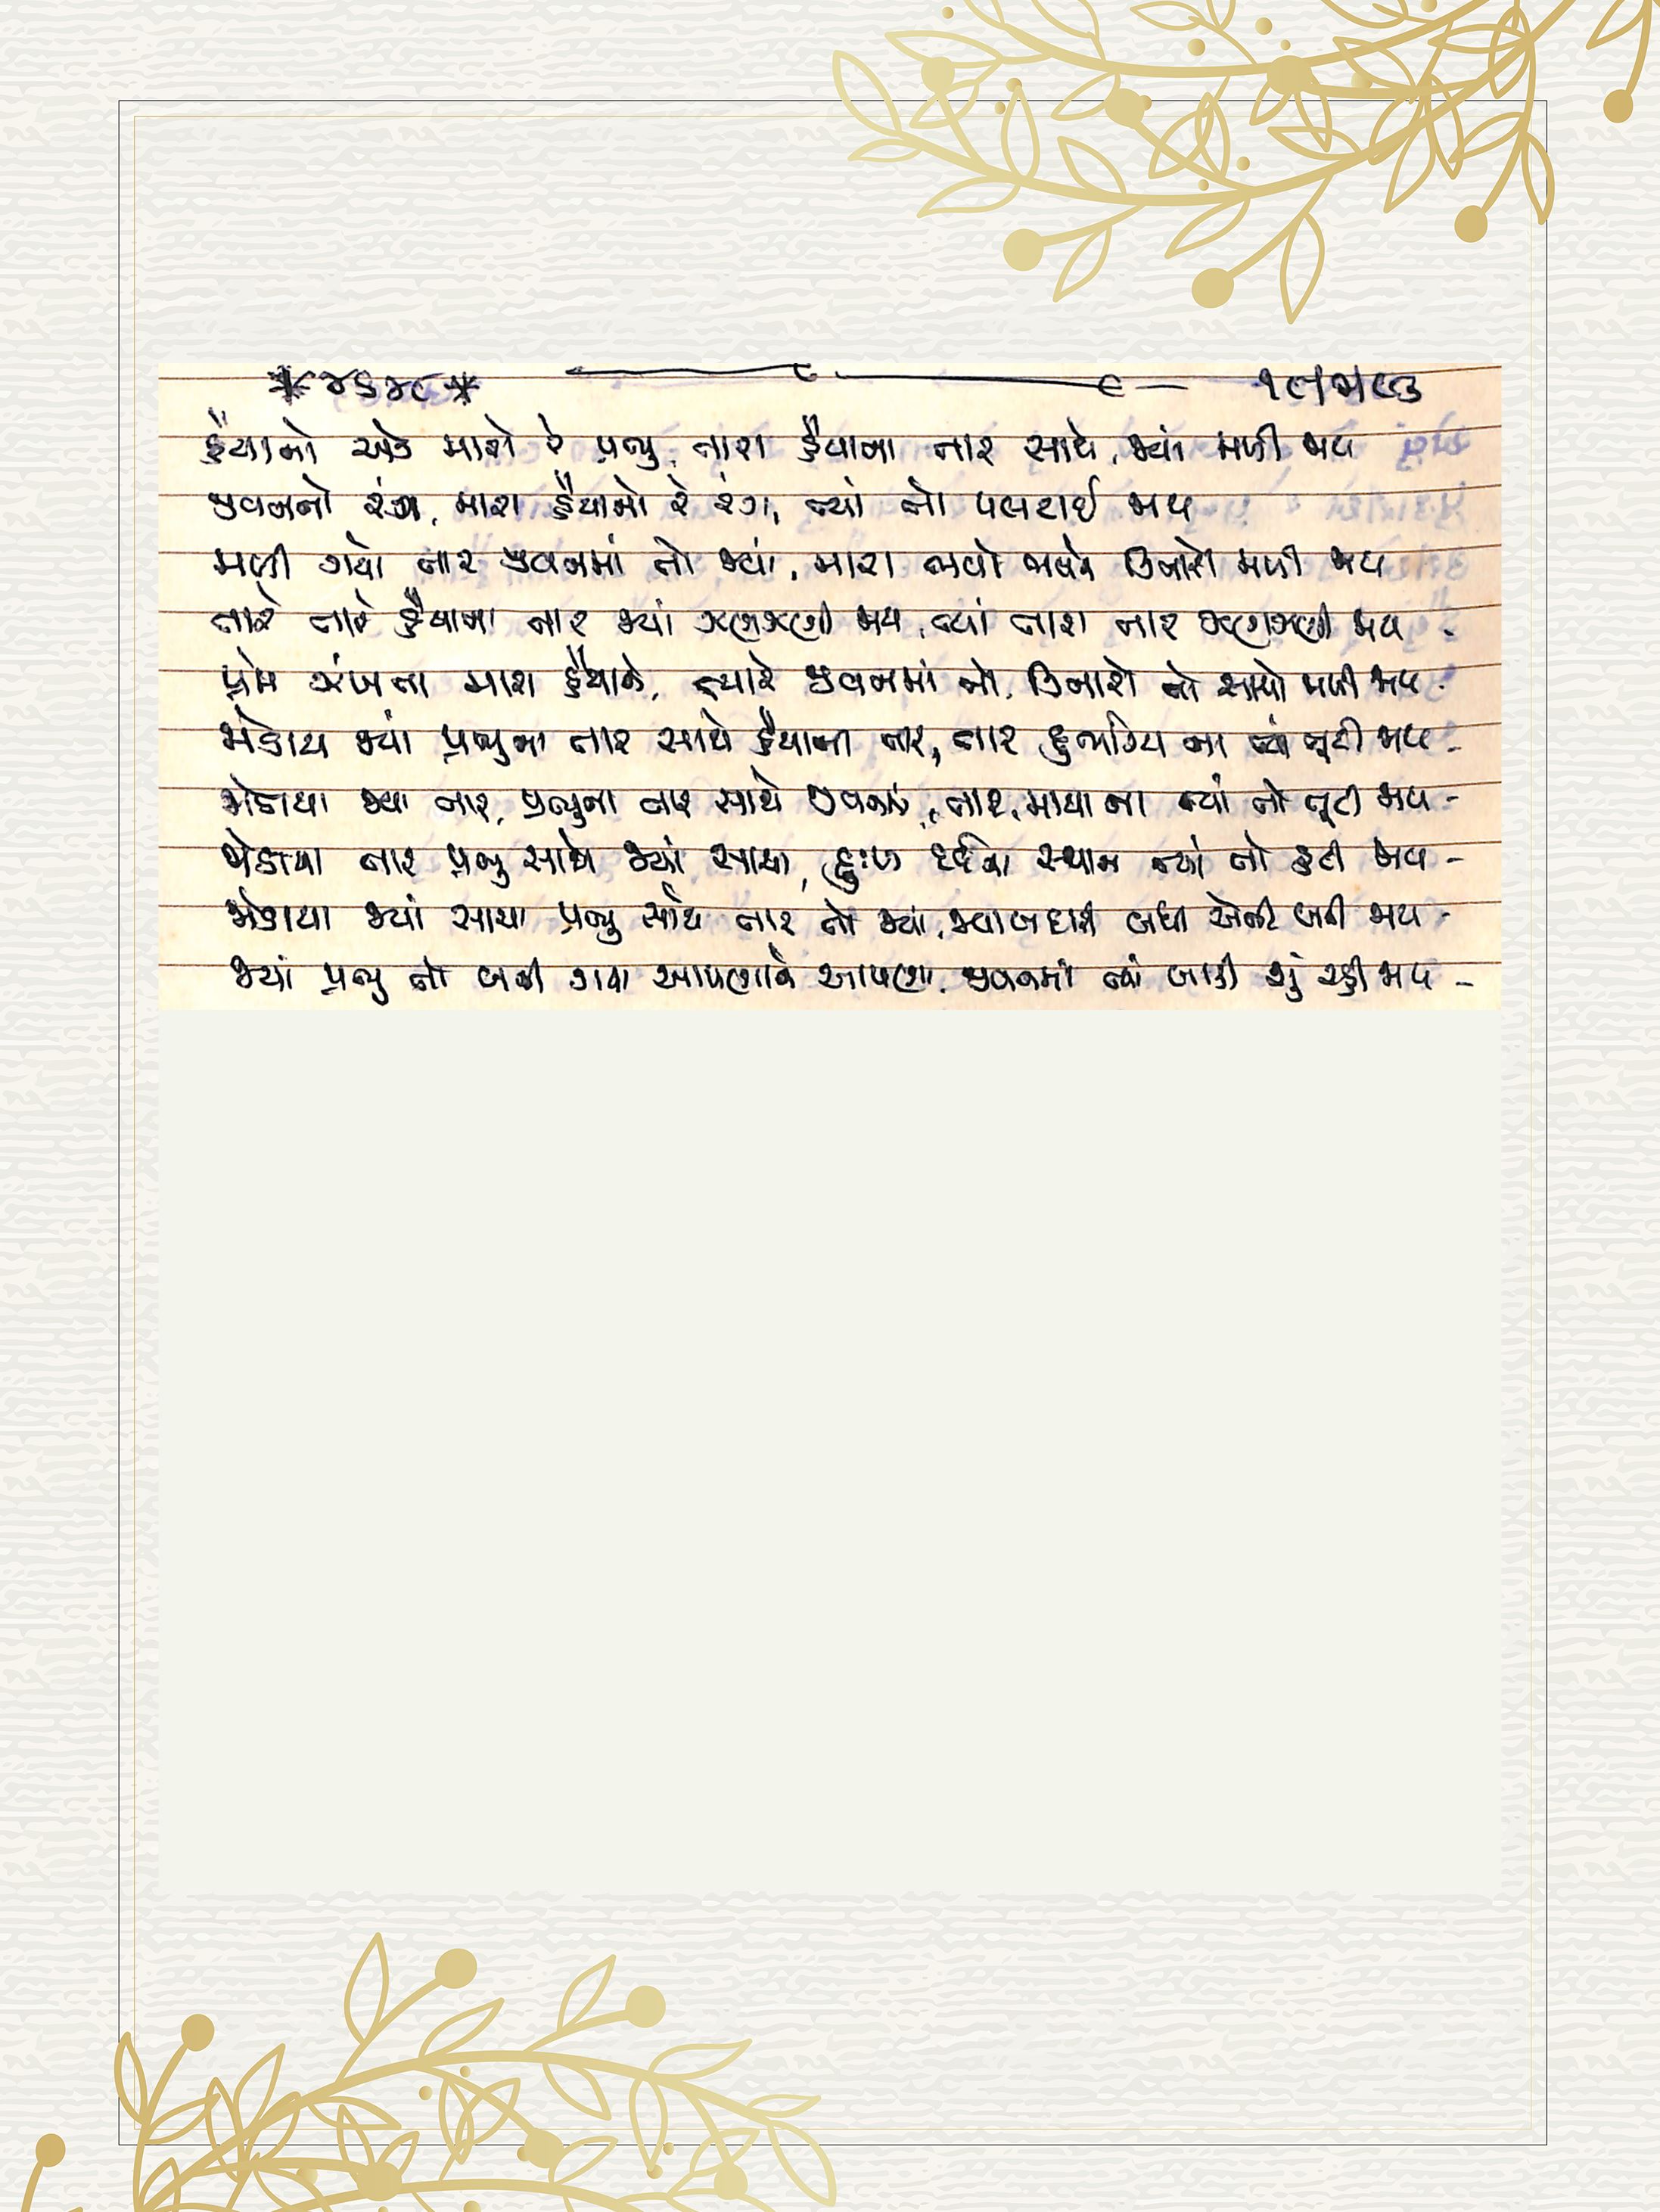 *૪૬૪૮* ૧૯/૫/૯૩
હૈયાનો એક મારો રે પ્રભુ, તારા હૈયાના તાર સાથે, જ્યાં મળી જાય
જીવનનો રંગ, મારા હૈયાનો રે રંગ, ત્યાં તો પલટાઈ જાય
મળી ગયો તાર જીવનમાં તો જ્યાં, મારા ભવો ભવને કિનારો મળી જાય
તારે તારે હૈયાના તાર જ્યાં ઝણઝણી જાય, ત્યાં તારા તાર ઝણઝણી જાય -
પ્રેમ ઝંખતા મારા હૈયાને, ત્યારે જીવનમાં તો, કિનારો તો સાચો મળી જાય -
જોડાય જ્યાં પ્રભુના તાર સાથે હૈયાના તાર, તાર દુર્ભાગ્ય ના ત્યાં તૂટી જાય -
જોડાયા જ્યાં તાર, પ્રભુના તાર સાથે જીવનના, તાર, માયા ના ત્યાં તો તૂટી જાય -
જોડાયા તાર પ્રભુ સાથે જ્યાં સાચા, દુઃખ દર્દના સ્થાન ત્યાં તો હટી જાય -
જોડાયા જ્યાં સાચા પ્રભુ સાથે તાર તો જ્યાં, જવાબદારી બધી એની બની જાય -
જ્યાં પ્રભુ તો બની ગયા આપણાને આપણા, જીવનમાં ત્યાં બાકી શું રહી જાય -